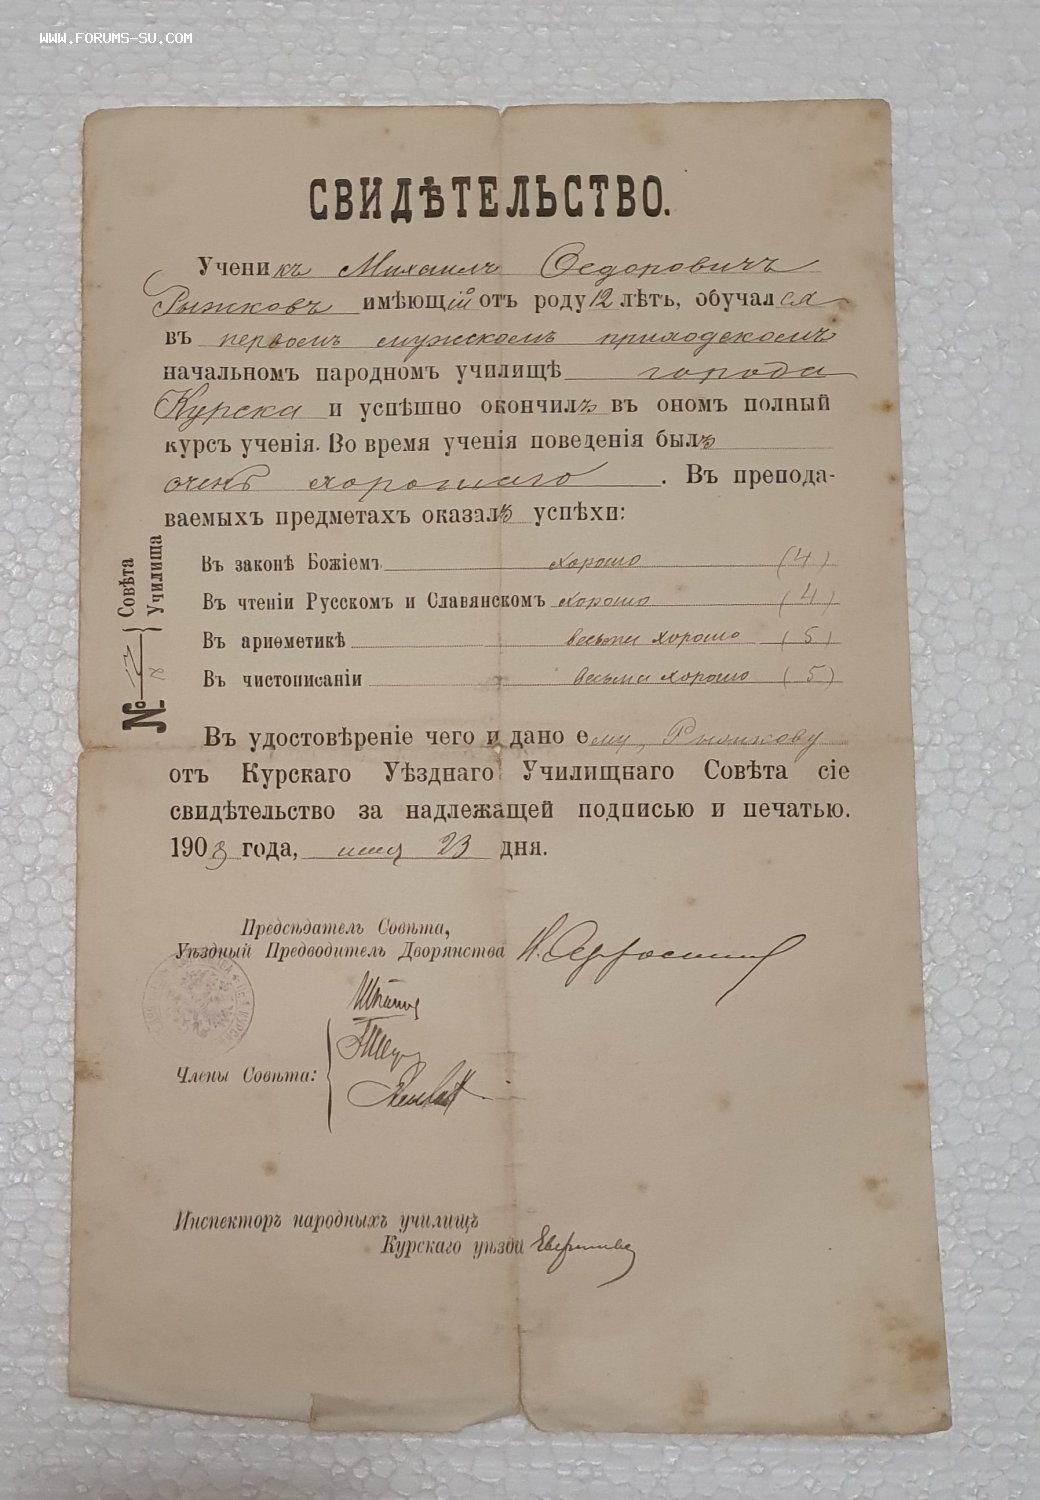 WWW.FORUMS-SU.COM
СВИДѢТЕЛЬСТВО.
Ученикъ Михаилъ Ѳедоровичъ
Рыжковъ имѣющій отъ роду 12 лѣтъ, обучался
въ первомъ мужскомъ приходскомъ
начальномъ народномъ училищѣ города
Курска и успѣшно окончилъ въ ономъ полный
курсъ ученія. Во время ученія поведенія былъ
очень хорошаго. Въ препода-
ваемыхъ предметахъ оказалъ успѣхи:
Въ законѣ Божіемъ хорошо (4)
Въ чтеніи Русскомъ и Славянскомъ хорошо (4)
Въ ариѳметикѣ весьма хорошо (5)
Въ чистописаніи весьма хорошо (5)
№ Совѣта
Училища
Въ удостовѣреніе чего и дано ему, Рыжкову
отъ Курскаго Уѣзднаго Училищнаго Совѣта сіе
свидѣтельство за надлежащей подписью и печатью.
190 года, 23 дня.
Предсѣдатель Совѣта,
Уѣздный Предводитель Дворянства
Члены Совѣта:
Инспекторъ народныхъ училищъ
Курскаго уѣзда